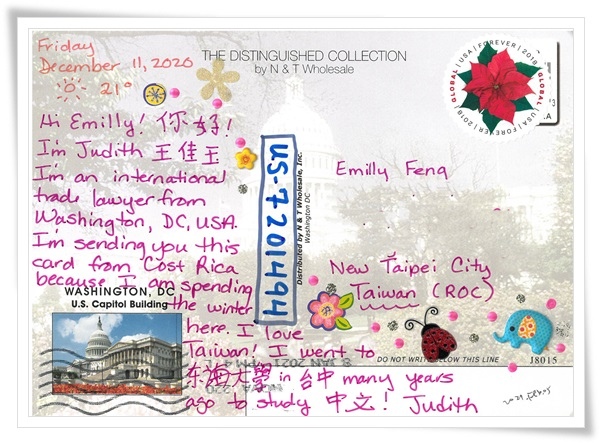 Friday
December 11, 2020
21°
THE DISTINGUISHED COLLECTION
by N & T Wholesale
GLOBAL | USA | FOREVER | 2018
GLOBAL | USA | FOREVER | 2018
Hi Emilly! 你好!
I'm Judith 王佳玉
I'm an international
trade lawyer from
Washington, DC, USA.
I'm sending you this
card from Cost Rica
because I am spending
the winter
here. I love
Taiwan! I went to
东海大學 in 台中 many years
ago to study 中文! Judith
WASHINGTON, DC
U.S. Capitol Building
US-7201494
Distributed by N & T Wholesale, Inc.
Washington DC
Emilly Feng
New Taipei City
Taiwan (ROC)
DO NOT WRITE BELOW THIS LINE
J8015